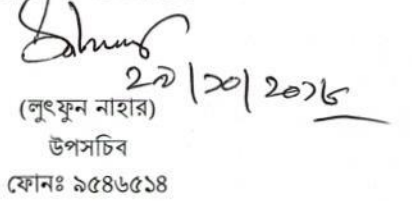 ২৯/১০/২০১৮
(লুৎফুন নাহার)
উপসচিব
ফোনঃ ৯৫৪৬৫১৪